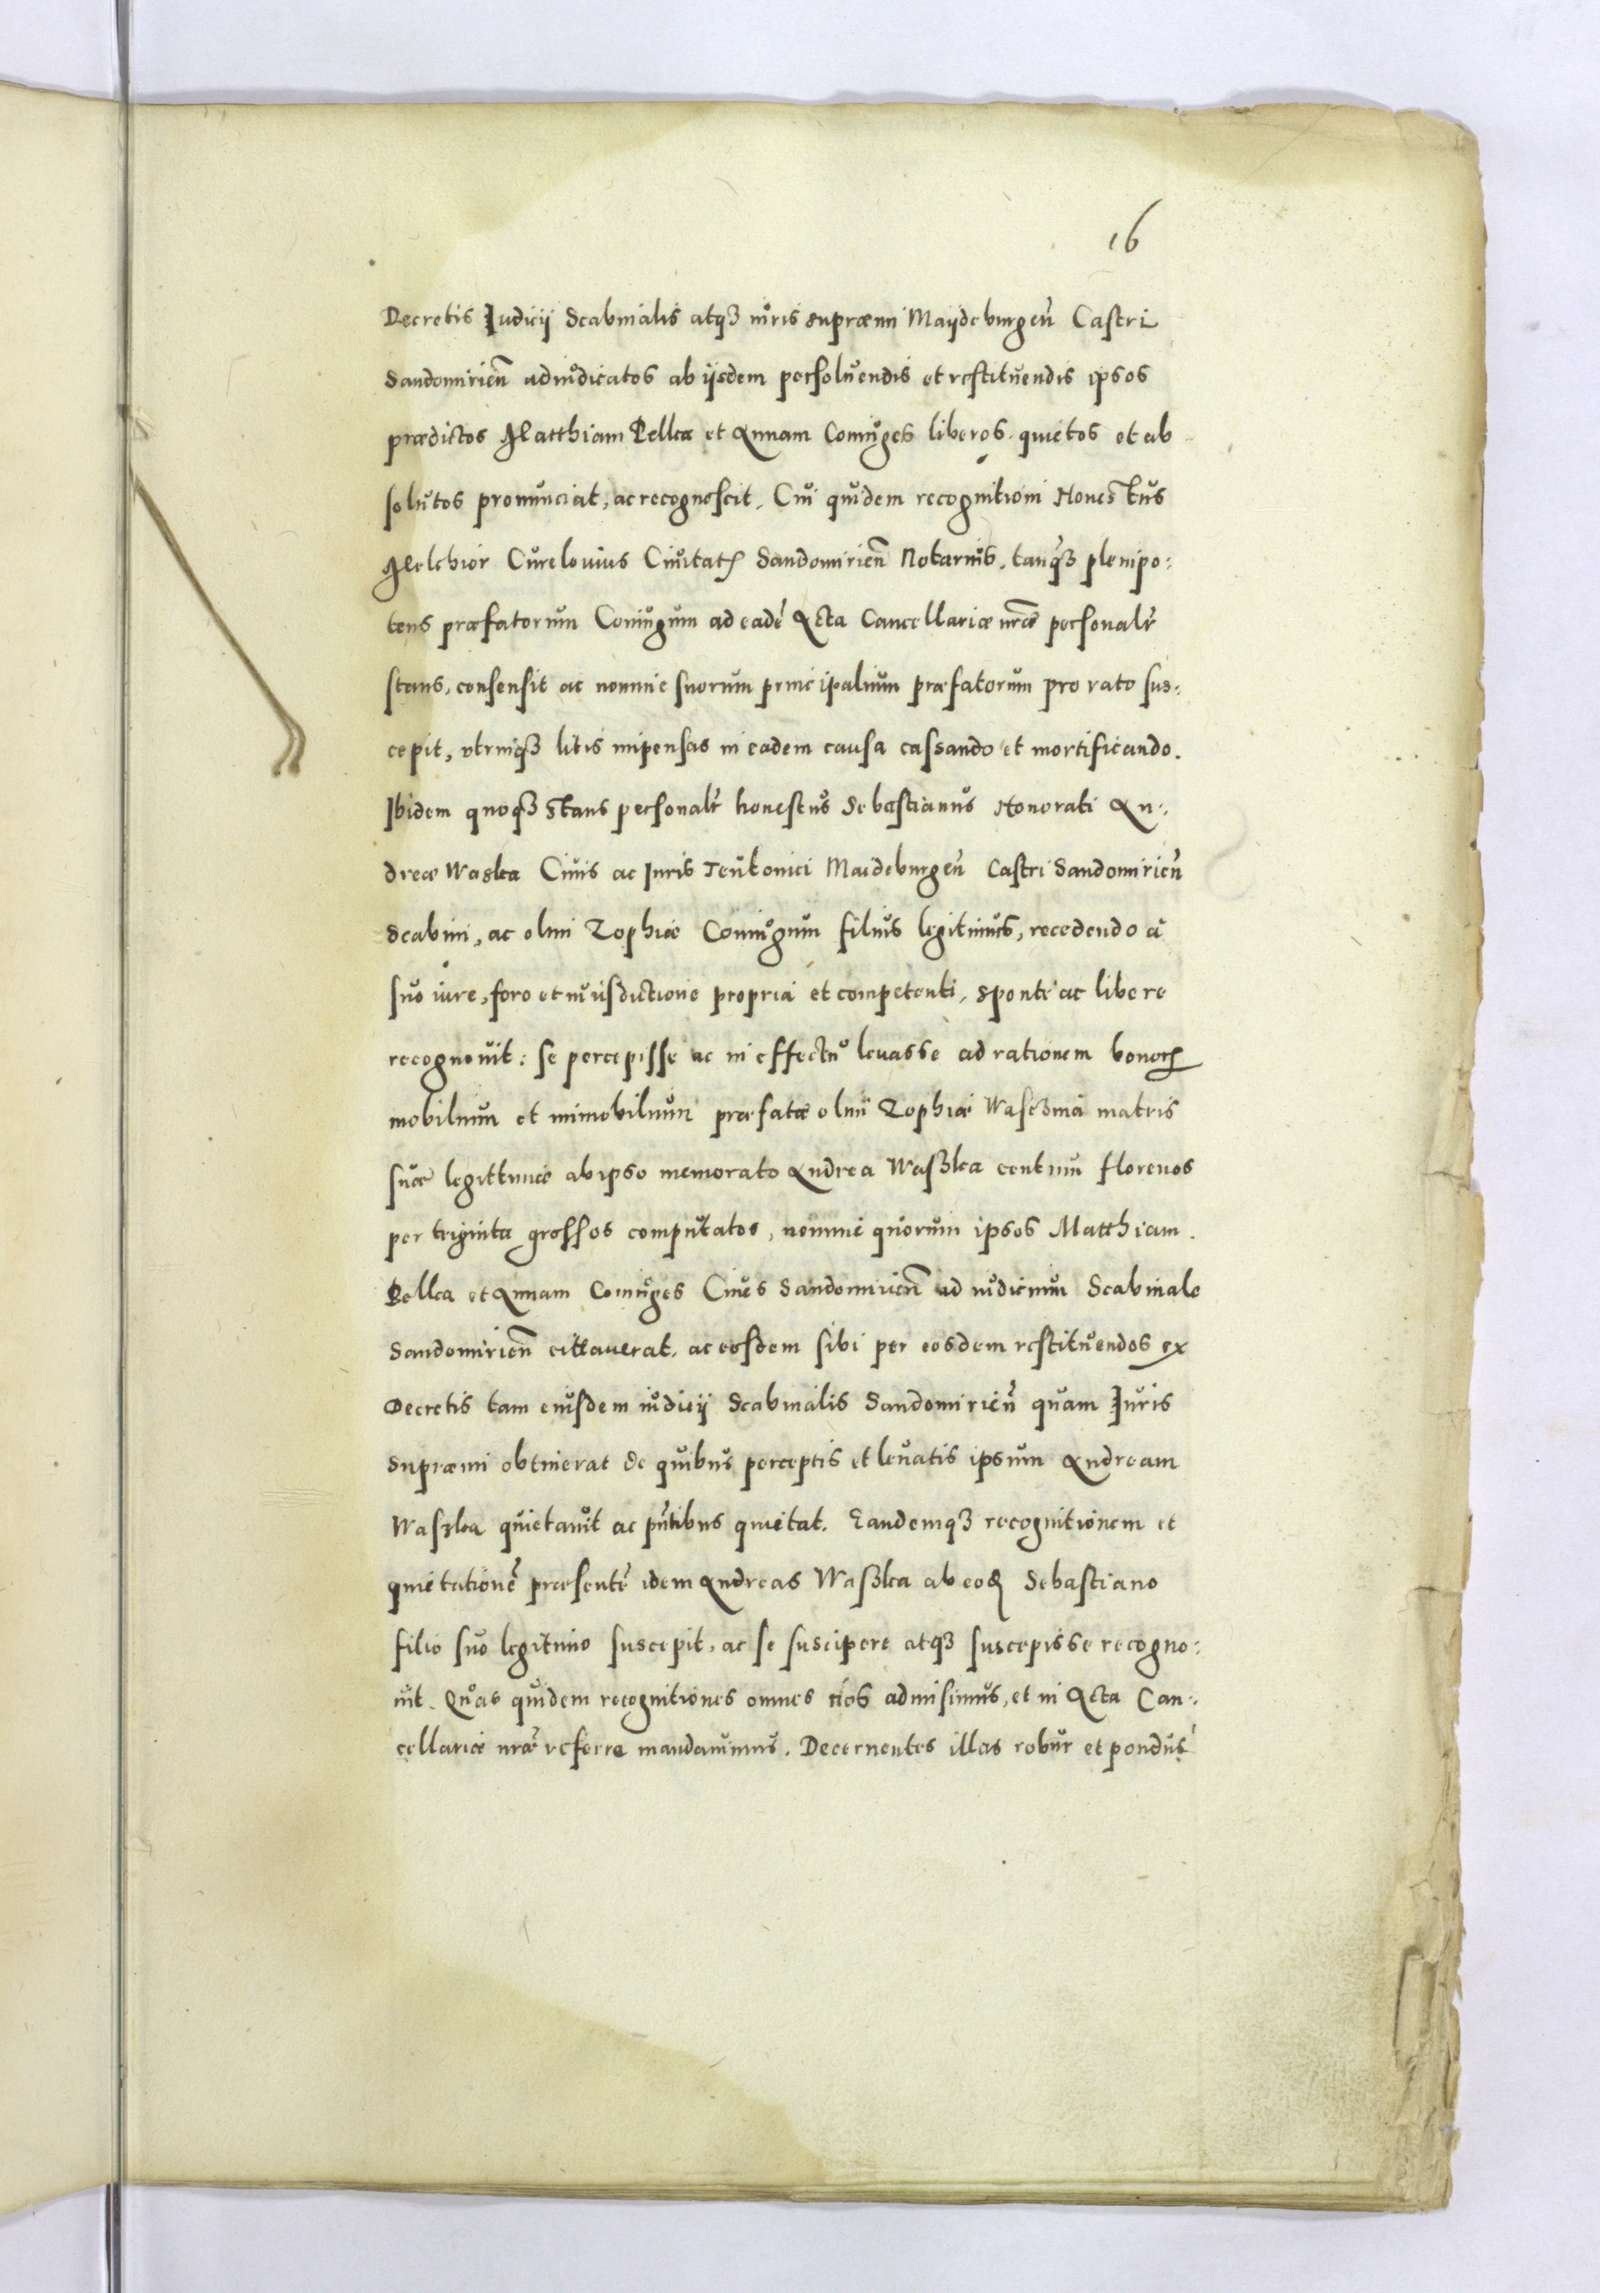 16
Decretis Iudicij Scabinalis atqз iuris supræmi Maijdeburgen̄ Castri
Sandomirien̄ adiudicatos ab ijsdem persoluendis et restituendis ipsos
prædictos Matthiam Pellca et Annam Coniuges liberos quietos et ab
solutos pronunciat, ac recognoscit. Cui quidem recognitioni Honestus
Melchior Curelouius Ciuitatꝭ Sandomirien̄ Notarius, tanq̄з plenipo:
tens præfatorum Coniugum ad eadē Acta Cancellariæ nr̄æ personalr̄
stans, consensit ac nomine suorum principalium præfatorum pro rato sus:
cepit, vtrinqз litis impensas in eadem causa cassando et mortificando.
Ibidem quoqз stans personalr̄ honestus Sebastianus Honorati An:
dreæ Waslca Ciuis ac Iuris Teutonici Maideburgen̄ Castri Sandomirien̄
Scabini, ac olim Zophiæ Coniugum filius legitimus, recedendo à
suo iure, foro et iurisdictione propria et competenti, sponte ac libere
recognouit: se percepisse ac in effectu leuasse ad rationem bonorꝝ
mobilium et immobilium præfatæ olim Zophiæ Wasczina matris
suæ legittimæ ab ipso memorato Andrea Waszlca centum florenos
per triginta grossos computatos, nomine quorum ipsos Matthiam
Pellca et Annam Coniuges Ciues Sandomirien̄ ad iudicium Scabinale
Sandomirien̄ cittauerat, ac eosdem sibi per eosdem restituendos ex
Decretis tam eiusdem iudicij Scabinalis Sandomirien̄ quam Iuris
Supræmi obtinerat de quibus perceptis et leuatis ipsum Andream
Waszlca quietauit ac pn̄tibus quietat. Eandemqз recognitionem et
quietationē præsentē idem Andreas Waszlca ab eoꝺ Sebastiano
filio suo legitimo suscepit, ac se suscipere atqз suscepisse recogno:
uit. Quas quidem recognitiones omnes nos admisimus, et in Acta Can:
cellariæ nr̄æ referre mandauimus. Decernentes illas robur et pondus